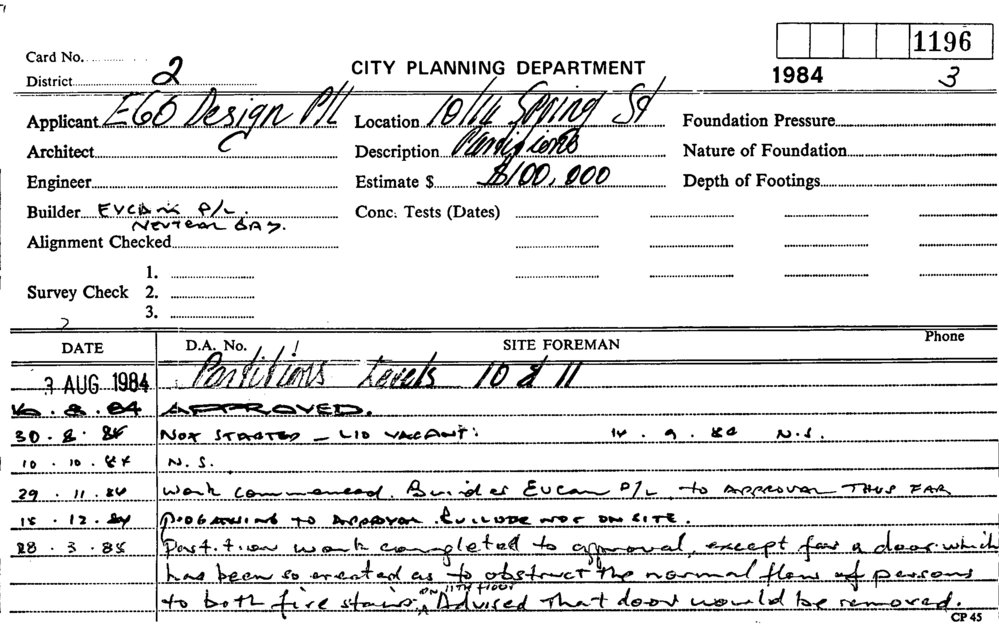 1196
Card No.
1984 3
District 2
CITY PLANNING DEPARTMENT
Applicant EGO Design P/L Location 10/14 Spring St Foundation Pressure
Architect Description Partitions Nature of Foundation
Engineer Estimate $ $100,000 Depth of Footings
Builder P/L. Conc. Tests (Dates)
NEUTRAL BAY.
Alignment Checked
1.
Survey Check 2.
3.
DATE D.A. No. SITE FOREMAN Phone
3 AUG 1984 Partitions Levels 10 & 11
8.84 APPROVED.
30.8.84 NOT STARTED - L10 VACANT: 14.9.84 N.S.
10.10.84 N.S.
29.11.84 Work commenced. Builder P/L, to APPROVAL THUS FAR
12.84 TO APPROVAL. NOT ON SITE.
28.3.85 Partition work completed to approval, except for a door which
has been so erected as to obstruct the normal flow of persons
to both fire stairs, on 11TH FLOOR Advised that door would be removed.
CP 45